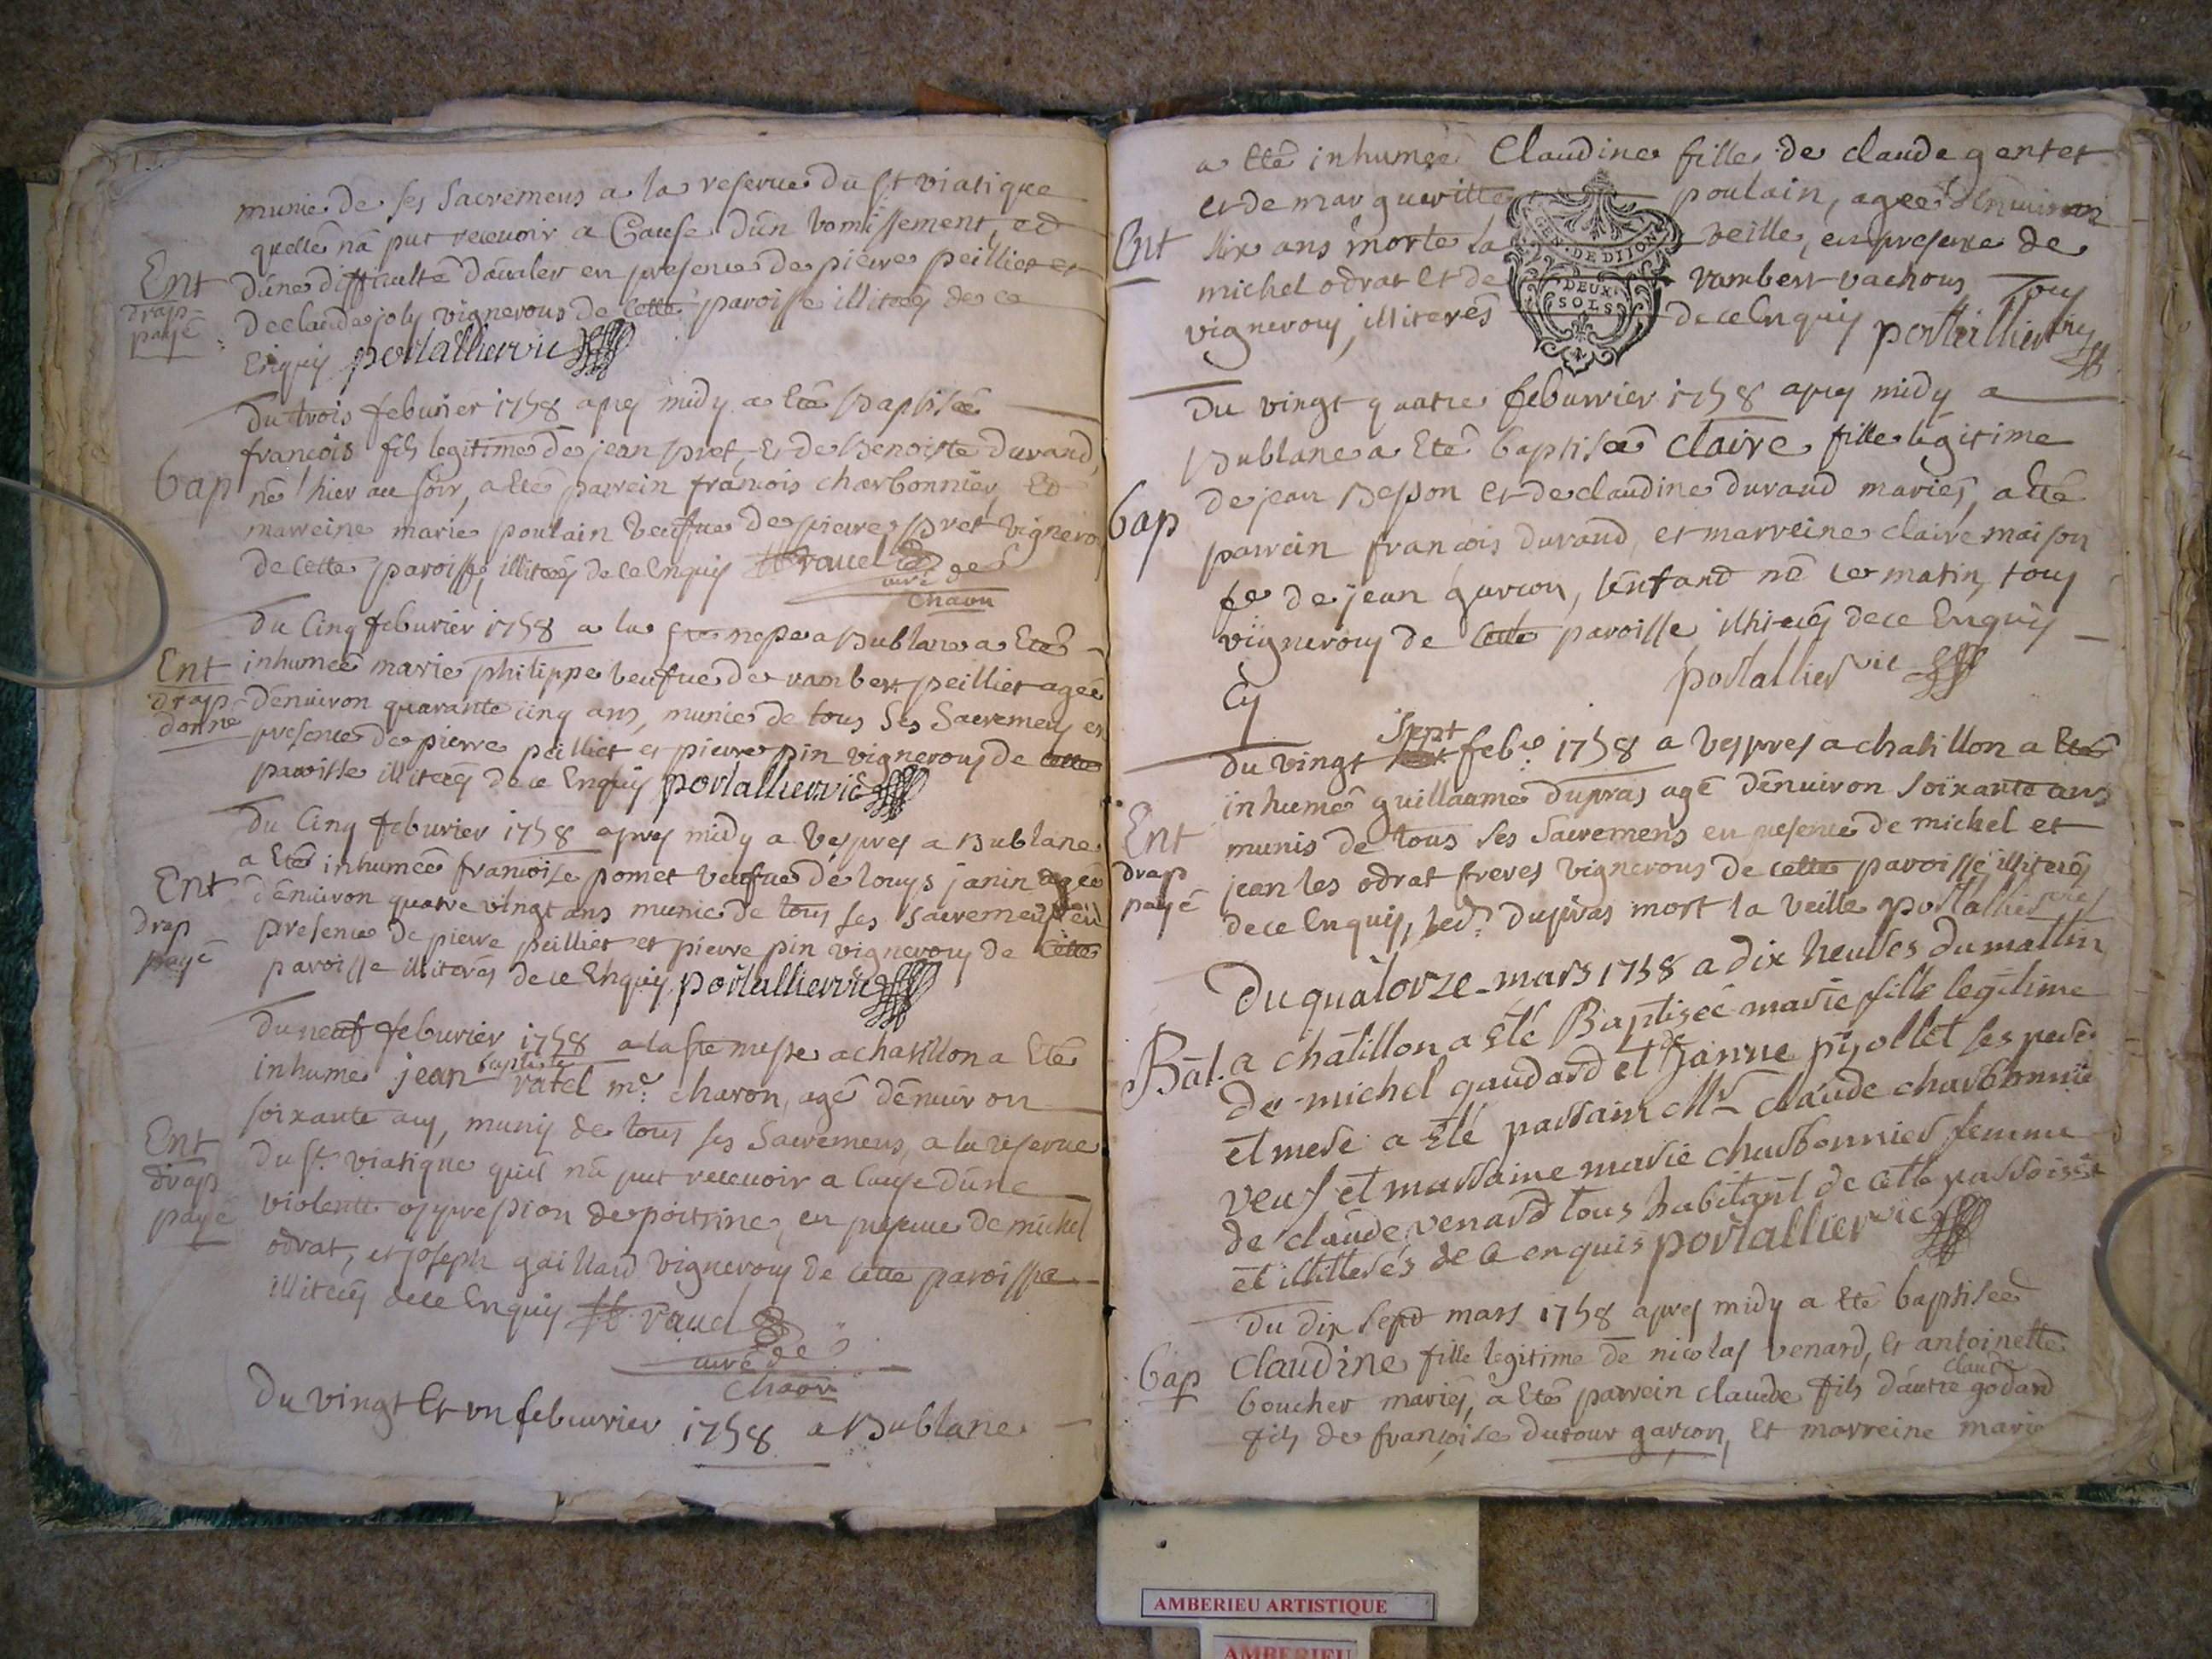 munie de ses Sacremens a la reserve du st viatique
quelle nâ put recevoir a Cause dûn vomissement, et
Ent
drap
payé
dûne difficulté dâvaler en presence de pierre peillier et
de claude joly vignerons de cette paroisse illiterés de ce
Enquis portallier vic
Du trois feburier 1758 apres midy a Eté Baptisé
françois fils legitime de jean pret, Et de Benoiste Durand,
Bap
né hier au soir, a Eté parrein françois charbonnier, Et
marreine marie poulain veufve de pierre pret vigneron
de cette paroisse, illiterés de ce Enquis ravel
curé de
chaon
Du Cinq feburier 1758 a la messe a Bublane a Eté
Ent
drap
donné
inhumée marie philippe veufve de rambert peillier agée
dênviron quarante cinq ans, munie de tous ses Sacremens en
presence de pierre peillier et pierre pin vignerons de cette
paroisse illiterés de ce Enquis portallier vic
Du Cinq feburier 1758 apres midy a vespres a Bublane
a Eté inhumée françoise pomet veufve de louys janin agée
Ent
drap
payé
dênviron quatre vingt ans munie de tous ses sacremens en
presence de pierre peillier et pierre pin vignerons de cette
paroisse illiterés de ce Enquis portallier vic
Du neuf feburier 1758 a la ste messe a chatillon a Eté
inhumé jean baptiste ratel mr. charon, agé dênviron
soixante ans, munis de tous ses Sacremens, a la reserve
Ent
drap
payé
du st. viatique quil nâ put recevoir a Cause dûne
violente oppression de poitrine, en presence de michel
odrat, et joseph gaillard vignerons de cette paroisse
illiterés de ce Enquis ravel
curé de
chaon
Du vingt Et un feburier 1758 a Bublane
a Eté inhumée Claudine fille de claude gentet
et de margueritte poulain, agée dênviron
Ent
six ans morte la veille, en presence de
michel odrat et de rambert vachons Tous
vignerons, illiterés de ce Enquis portallier vic
GEN. DE DIJON
DEUX
SOLS
Du vingt quatre feburier 1758 apres midy a
Bublane a Eté baptisée claire fille legitime
de jean Besson et de claudine durand mariés, a Eté
Bap
parrein françois durand, et marreine claire maison
fe de jean garçon, lênfand né ce matin, tous
vignerons de cette paroisse, illiterés de ce Enquis
portallier vic
Cy
Du vingt Sept feb. 1758 a vespres a chatillon a Eté
inhumé guillaume dupras agé dênviron soixante ans
Ent
drap
payé
munis de tous ses Sacremens en presence de michel et
jean les odrat freres vignerons de cette paroisse illiterés
de ce Enquis, led. dupras mort la veille portallier vic
Du quatorze mars 1758 a dix heures du mattin
Bat.
a chatillon a Eté Baptisée marie fille legitime
de michel gaudard et de Janne pijollet ses pere
et mere a Eté parrain Mr claude charbonnie
veuf et marraine marie charbonnier femme
de claude venard tous habitant de cette parroisse
et illitterés de ce enquis portallier vic
Du dix sept mars 1758 apres midy a Eté baptisée
Bap
Claudine fille legitime de nicolas venard, Et antoinette
boucher mariés, a Eté parrein claude fils dâutre claude godard
fils de françoise dutour garçon, Et marreine marie
AMBERIEU ARTISTIQUE
AMBERIEU